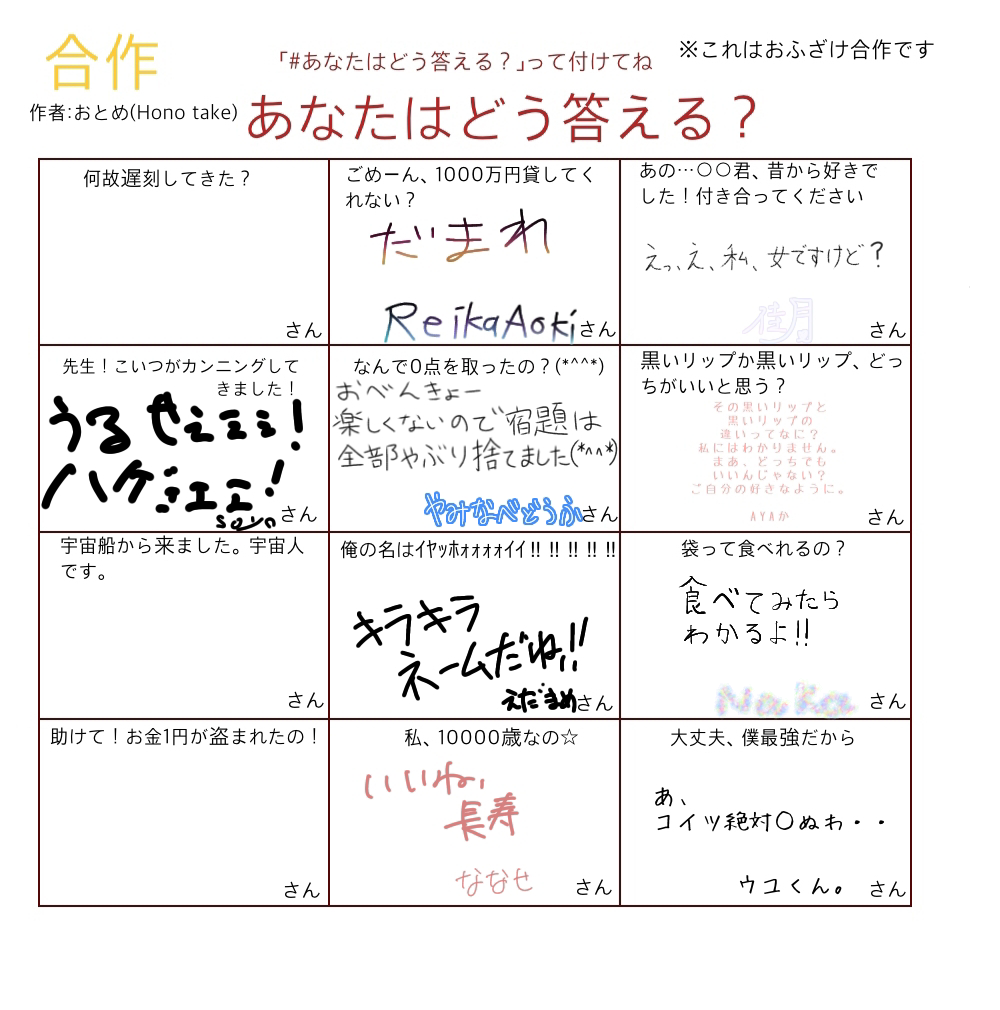 合作
「#あなたはどう答える？」って付けてね
※これはおふざけ合作です
作者:おとめ(Hono take)
あなたはどう答える？
何故遅刻してきた？
さん
ごめーん、1000万円貸してく
れない？
だまれ
ReikaAokiさん
あの…〇〇君、昔から好きで
した！付き合ってください
えっ、え、私、女ですけど？
さん
先生！こいつがカンニングして
きました！
うるせェミミ！
ハゲェエミ！
さん
なんで0点を取ったの？(*^^*)
おべんきょー
楽しくないので宿題は
全部やぶり捨てました(*^^*)
やみなべどうふさん
黒いリップか黒いリップ、どっ
ちがいいと思う？
その黒いリップと
黒いリップの
違いってなに？
私にはわかりません。
まあ、どっちでも
いいんじゃない？
ご自分の好きなように。
AYAか
さん
宇宙船から来ました。宇宙人
です。
さん
俺の名はｲﾔｯﾎｫｫｫｫイイ!! !! !! !! !!
キラキラ
ネームだね!!
えだまめさん
袋って食べれるの？
食べてみたら
わかるよ!!
NaKa さん
助けて！お金1円が盗まれたの！
さん
私、10000歳なの☆
いいね、
長寿
ななせ さん
大丈夫、僕最強だから
あ、
コイツ絶対〇ぬわ・・
ウユくん。 さん